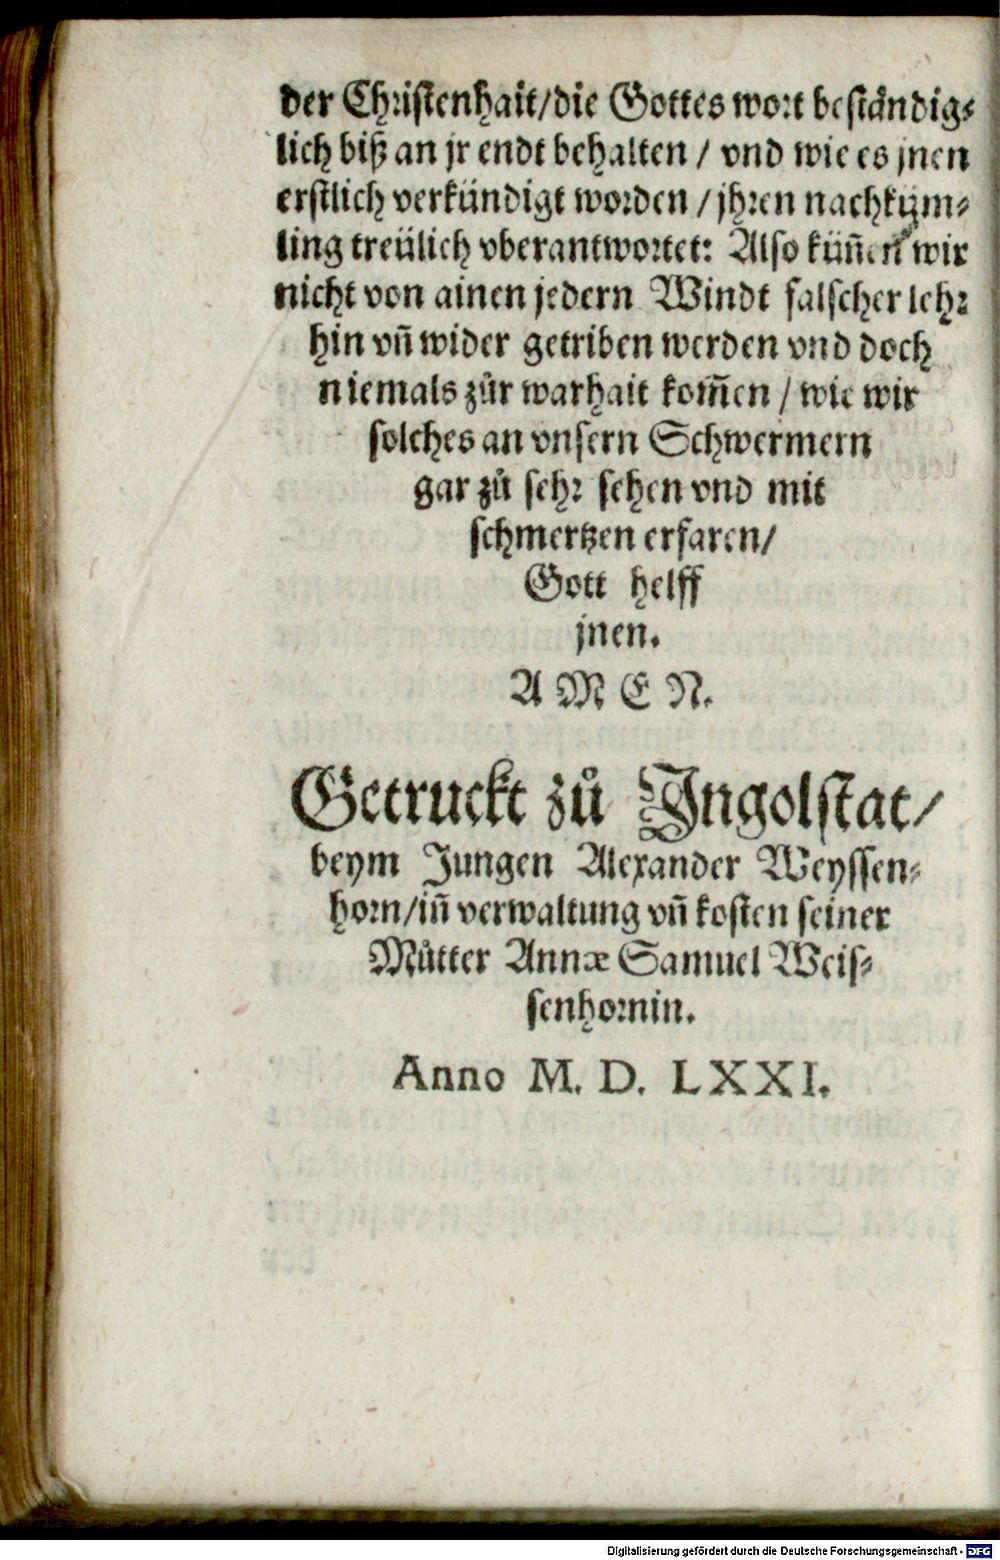 der Christenhait/die Gottes wort beständig⸗
lich biß an jr endt behalten / vnd wie es jnen
erstlich verkündigt worden / jhren nachkům⸗
ling treülich vberantwortet: Also küñen wir
nicht von ainen jedern Windt falscher lehr
hin vñ wider getriben werden vnd doch
niemals zůr warhait kom̃en / wie wir
solches an vnsern Schwermern
gar zů sehr sehen vnd mit
schmertzen erfaren/
Gott helff
jnen.
A M E N.
Getruckt zů Jngolstat/
beym Jungen Alexander Weyssen⸗
horn/iñ verwaltung vñ kosten seiner
Můtter Annæ Samuel Weis⸗
senhornin.
Anno M. D. LXXI.
Digitalisierung gefördert durch die Deutsche Forschungsgemeinschaft - DFG